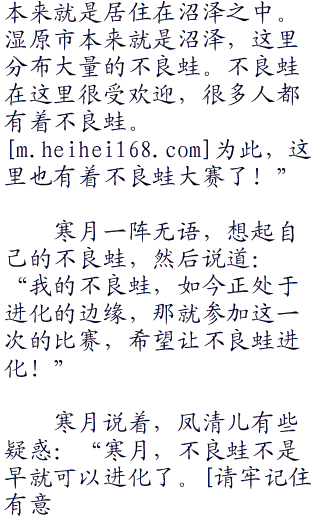 本来就是居住在沼泽之中。
湿原市本来就是沼泽，这里
分布大量的不良蛙。不良蛙
在这里很受欢迎，很多人都
有着不良蛙。
[m.heihei168.com]为此，这
里也有着不良蛙大赛了！”
寒月一阵无语，想起自
己的不良蛙，然后说道：
“我的不良蛙，如今正处于
进化的边缘，那就参加这一
次的比赛，希望让不良蛙进
化！”
寒月说着，凤清儿有些
疑惑：“寒月，不良蛙不是
早就可以进化了。[请牢记住
有意